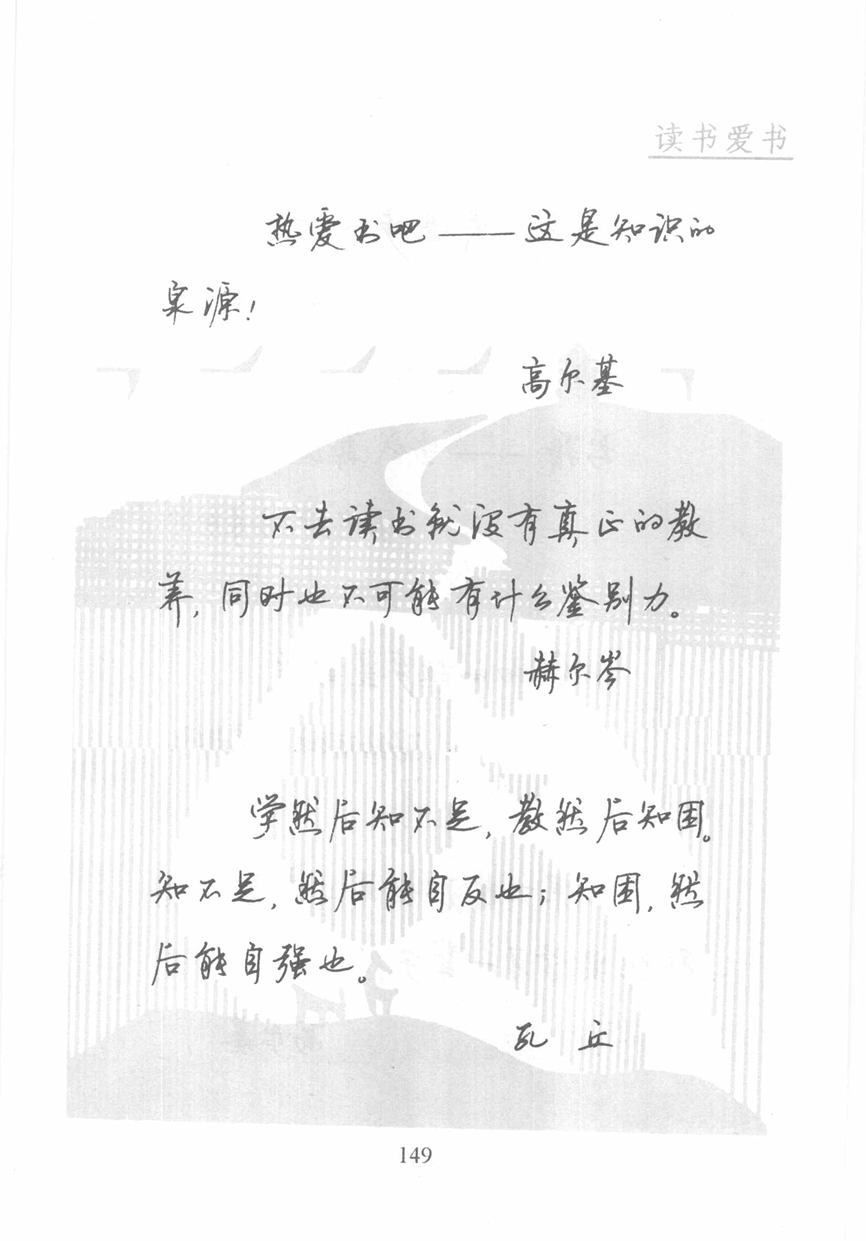 读书爱书
热爱书吧——这是知识的
泉源！
高尔基
不去读书就没有真正的教
养，同时也不可能有什么鉴别力。
赫尔岑
学然后知不足，教然后知困。
知不足，然后能自反也；知困，然
后能自强也。
孔 丘
149